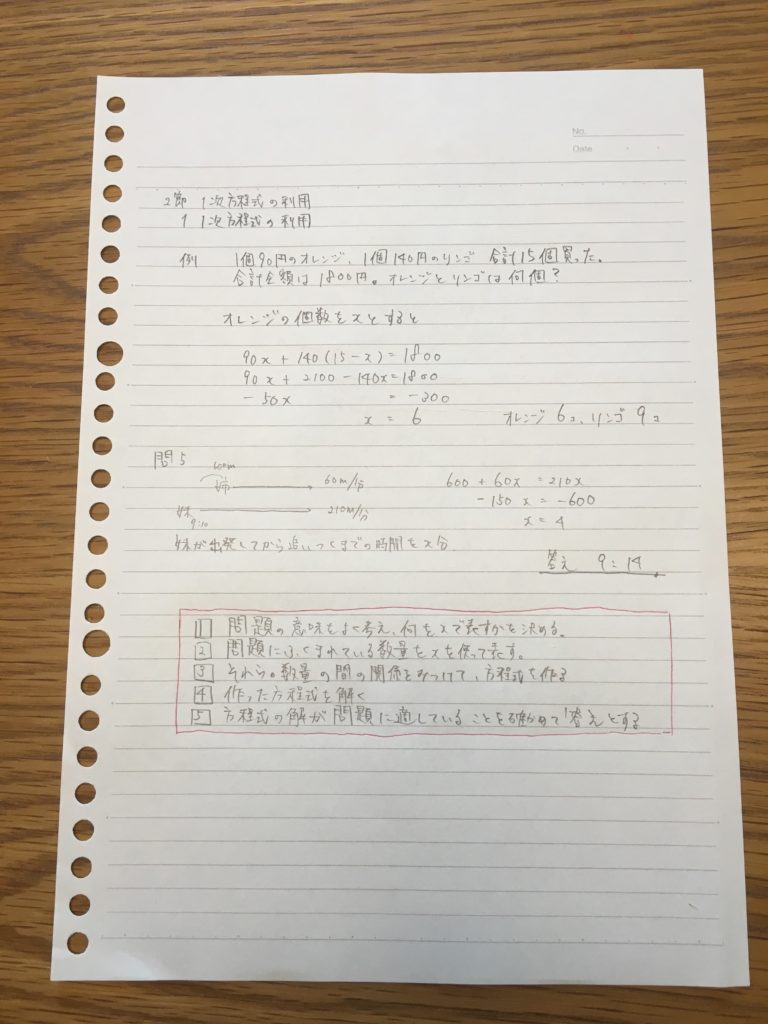 No.
Date
2節 1次方程式の利用
1 1次方程式の利用
例 1個90円のオレンジ、1個140円のリンゴ 合計15個買った。
合計金額は1800円。オレンジとリンゴは何個?
オレンジの個数をxとすると
90x + 140(15-x) = 1800
90x + 2100 - 140x = 1800
- 50x = -300
x = 6 オレンジ 6コ、リンゴ 9コ
問5
600m
姉 60m/分
妹 210m/分
9:10
妹が出発してから追いつくまでの時間をx分
600 + 60x = 210x
-150x = -600
x = 4
答え 9:14
1 問題の意味をよく考え、何をxで表すかを決める。
2 問題にふくまれている数量をxを使って表す。
3 それらの数量の間の関係をみつけて、方程式を作る
4 作った方程式を解く
5 方程式の解が問題に適していることを確かめて答えとする